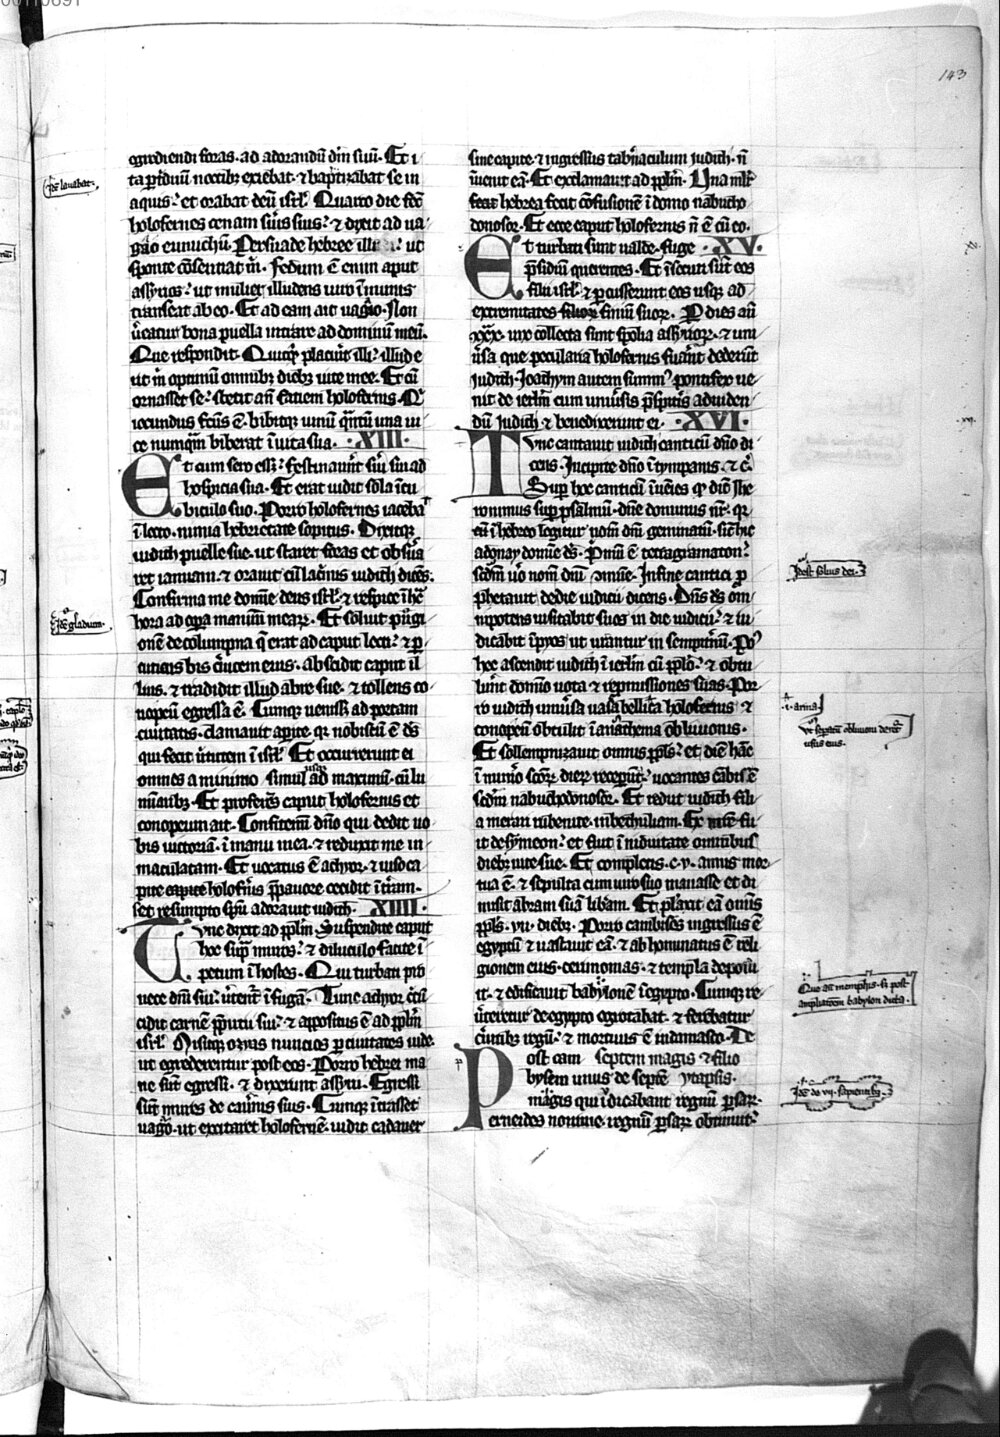 143
egrediendi foras. ad adorandū dn̄m suū. Et i
ta ꝑ tͥduū noctibꝫ exiebat. ⁊ baptizabat se in
aquis. et orabat deū isrl̄. Quarto die fec̄
holofernes cenam suis suis. ⁊ dixit ad ua
gao eunuchū. Persuade hebree illi ut
sponte cōsentiat m̄. Fedum ē enim aput
assyrios. ut mulier illudens uiro īmunis
transeat ab eo. Et ad eam ait uagao. Non
ūeatur bona puella intrare ad dominū meū.
Que respondit. Quicqͥ placuīt illi. illud e
rit m̄ optimū omnibꝫ diebꝫ uite mee. Et cū
ornasset se. stetit an̄ faciem holofernis. Qͥ
iocundus fcūs ē. bibitqꝫ uinū qn̄tū una ui
ce numqͣm biberat ī uita sua. .XIII.
Et cum sero eēt. festinauīt sui sui ad
hospicia sua. Et erat iudit sola ī cu
biculo suo. Porro holofernes iacebat
ī lecto. nimia hebrietate sopitus. Dixitqꝫ
iudith puelle sue. ut staret foras et obsūa
ret ianuam. ⁊ orauit cū lacͥmis iudith dicēs.
Confirma me domīe deus isrl̄. ⁊ respice ī hc̄
hora ad oꝑa manuum mearꝫ. Et soluit pugi
onē de columpna q̄ erat ad caput lecti. ⁊ ꝑ
cutiens bis cͣuicem eius. abscidit caput il
lius. ⁊ tradidit illud abre sue. ⁊ tollens co
nopeū egressa ē. Cumqꝫ uenissēt ad portam
ciuitatis. clamauit aperite qꝛ nobiscū ē dꝰ
qui fecit ūtutem ī isrl̄. Et occurrerunt ei
omnes a minimo simul usqꝫ ad maximū. cū lu
minaribꝫ. Et proferēs caput holofernis et
conopeum ait. Confitemī dn̄o qui dedit uo
bis uictoriā. ī manu mea. ⁊ reduxit me in
maculatam. Et uocatus ē achyor. ⁊ uiso ca
pite capite holofnīs p̄ pauore cecidit ī tͣram.
set resumpto spū adorauit iudith. .XIIII.
Tvnc dixit ad pplm̄. Suspendite caput
hoc suꝑ muros. ⁊ diluculo facite ī
petum ī hostes. Qui turbati pro
uece dn̄i sui. ūtent̄ ī fugā. Tunc achyor cͥcū
cidit carnē p̄putii sui. ⁊ appositus ē ad pplm̄
isrl̄. Misitqꝫ ozias nuncios ꝑ ciuitates iude.
ut egrederentur post eos. Porro hebrei ma
ne sūt egressi. ⁊ dixerunt assyrii. Egressi
sūt mures de cauͥnis suis. Cumqꝫ ītrasset
uagao. ut excitaret holofernē. uidit cadauer
sine capite. ⁊ ingressus tabn̄aculum iudith. n̄
īuenit eā. Et exclamauit ad pplm̄. Una mlͥr
hebrea fecit cōfusionē ī domo nabucho
donosor. Et ecce caput holofernis n̄ ē cū eo.
Et turbati sunt ualde. fuge .XV.
p̄sidiū querentes. Et īsecuti sūt eos
filii isrl̄. ⁊ ꝑcusserunt eos usqꝫ ad
extremitates finiū suorꝫ. Ꝑ dies aū
.xxx. uix collecta sunt spolia assyriorꝫ. ⁊ uni
ūsa que peculiaria holofernis fuerūt dederūt
iudith. Joachym autem summꝰ pontifex ue
nit de ierlm̄ cum uniūsis p̄sbīteris ad uiden
dū iudith ⁊ benedixerunt ei. .XVI.
Tvnc cantauit iudith canticū dn̄o di
cens. Incipite dn̄o ī tympanis. ⁊ cͥ.
Suꝑ hoc canticū īuēies qͣ dicͥ Jhe
ronimus suꝑ psalmū. dn̄e dominus nr̄. qꝛ
cū ī hebreo legitur nom̄ dn̄i geminatū. sic̄ hic
adonay domīe dꝰ. Pͥmū ē tetragramaton.
In fine cantici ꝓ
phetauit de die iudicii dicens. Dn̄s dꝰ om
nipotens uisitabit suos in die iudicii. ⁊ iu
dicabit īpios ut urantur in sempitn̄um. Poˢ
hec ascendit iudith ī ierlm̄ cū pplo. ⁊ obtu
lūnt domino uota ⁊ repmissiones suas. Por
ro iudith uniūsa uasa bellica holofernis ⁊
conopeū obtulit ī anathema obliuionis.
Et sollempnizauit omnis ppl̄s. et diē hāc
ī num̄o scōrꝫ dierꝫ recepūt.
Et rediit iudith fili
a merari rubenite. in bethuliam. Ex
it de symeon. et fuit ī uiduitate omnibus
diebꝫ uite sue. Et completis .c.v. annis mor
tua ē. ⁊ sepulta cum uiro suo manasse et di
misit abram suā libam. Et planxit eā omnis
ppl̄s .vii. diebꝫ. Porro cambises ingressus ē
egyptū ⁊ uastauit eā. ⁊ abhominatus ē reli
gionem eius. cerimonias. ⁊ templa deposu
it. ⁊ edificauit babylonē ī egypto. Cumqꝫ re
ūteretur de egypto egrotabat. ⁊ ferebatur
⁊ mortuus ē in damasco. De
Post eam septem magis ⁊ filio
bysem unus de septē ytapsis.
magis qui īdicabant regnū ꝑsarꝫ.
erneides nomine. regnū ꝑsarꝫ obtinuit.
idē lauabat.
idē gladium.
.i. arma
Que an̄ memphis. sꝫ post
ampliatōem babylon dicta.
Idē de .vii. sapientibꝫ.